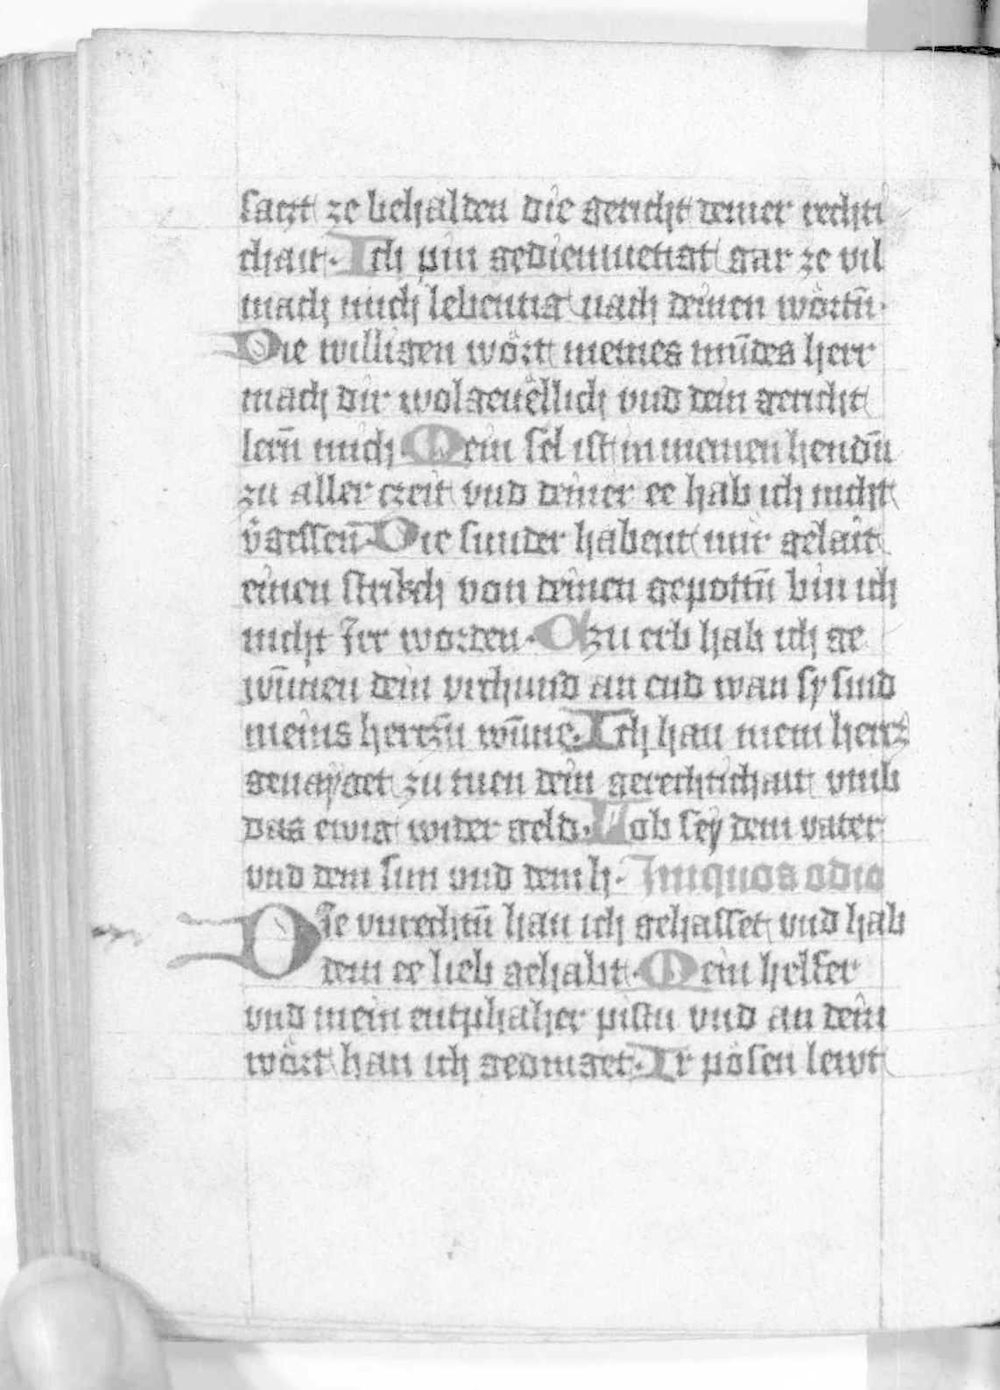 saczt ze behalden die gericht deiner rechti
chait. Ich pin gediemuetigt gar ze vil
mach mich lebentig nach deinen wörtn̄.
Die willigen wört meines mūdes herr
mach dir wolgeuellich vnd dein gericht
lern̄ mich Mein sel ist in meinen hendn̄
zu aller czeit vnd deiner ee hab ich nicht
v̄gessen Die sunder habent mir gelait
einen strikch von deinen gepottn̄ bin ich
nicht Jrr worden. Czu erb hab ich ge
wūnen dein vrchund an end wan sy sind
meins herczn̄ wūne. Ich han mein hercz
genayget zu tuen dein gerechtichait vmb
das ewig wider geld. Lob sey dem vater
vnd dem sun vnd dem h. Iniquos odio
Die vnrechtn̄ han ich gehasset vnd hab
dein ee lieb gehabt. Mein helfer
vnd mein entphaher pistu vnd an dein
wört han ich gedinget. Ir pösen lewt